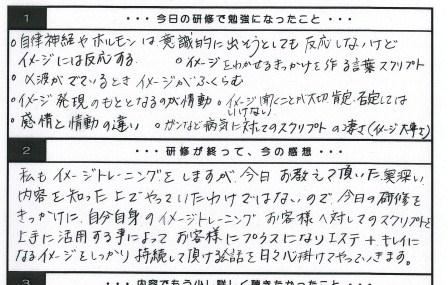 1 ・・・今日の研修で勉強になったこと・・・
○自律神経やホルモンは意識的に出そうとしても反応しないけど
イメージには反応する ○イメージをわかせるきっかけを作る言葉スクリプト
○α波がでているときイメージがふくらむ
○イメージ発現のもととなるのが情動 ○イメージ聞くことが大切 肯定・否定しては
いけない
○感情と情動の違い ○ガンなど病気に対してのスクリプトの凄さ(イメージ大事さ)
2 ・・・研修が終わって、今の感想・・・
私もイメージトレーニングをしますが、今日お教えて頂いた奥深い
内容を知った上でやっていたわけではないので、今日の研修を
きっかけに、自分自身のイメージトレーニング お客様へ対してのスクリプトを
上手に活用する事によってお客様にプラスになりエステ+キレイに
なるイメージをしっかり持続して頂ける会話を日々心掛けてやっていきます。
3 ・・・内容でもう少し詳しく聴きたかったこと・・・